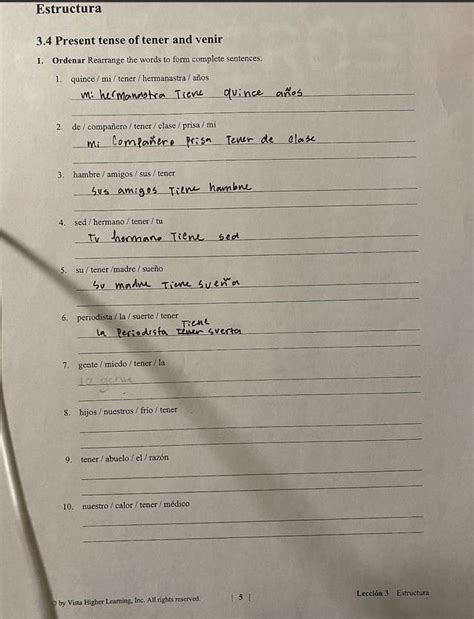 Estructura
3.4 Present tense of tener and venir
1. Ordenar Rearrange the words to form complete sentences.
1. quince / mi / tener / hermanastra / años
mi hermanastra Tiene quince años
2. de / compañero / tener / clase / prisa / mi
mi Compañero prisa Tener de clase
3. hambre / amigos / sus / tener
sus amigos Tiene hambre
4. sed / hermano / tener / tu
Tu hermano Tiene sed
5. su / tener /madre / sueño
Su madre Tiene sueña
6. periodista / la / suerte / tener
Tiene
la Periodista Tener suerta
7. gente / miedo / tener / la
la gente
8. hijos / nuestros / frío / tener
9. tener / abuelo / el / razón
10. nuestro / calor / tener / médico
by Vista Higher Learning, Inc. All rights reserved. | 5 | Lección 3 Estructura